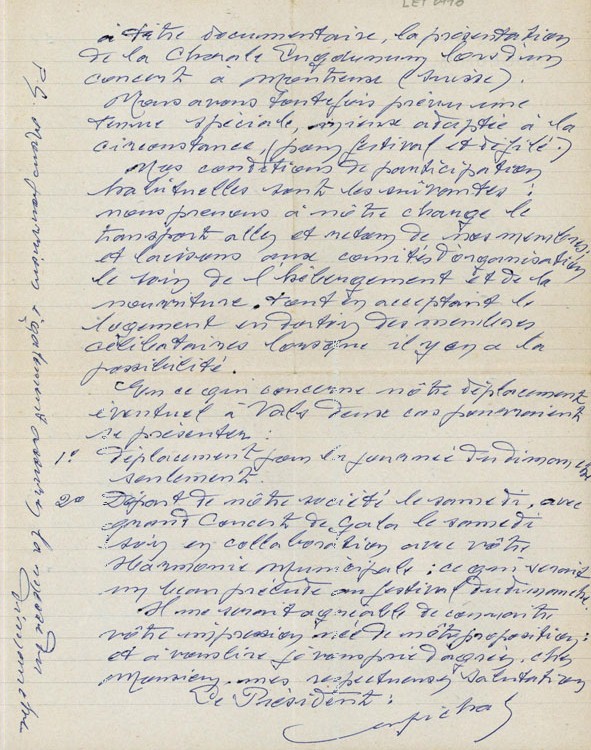 à titre documentaire, la présentation
de la Chorale Lugdunum lors d'un
concert à Montreux (Suisse).
Nous avons toutefois prévu une
tenue spéciale, mieux adaptée à la
circonstance, (pour festival et défilé.)
Nos conditions de participation
habituelles sont les suivantes :
nous prenons à nôtre charge le
transport aller et retour de nos membres,
et laissons aux comités d'organisation
le soin de l'hébergement et de la
nourriture. tout en acceptant le
logement en dortoir des membres
célibataires lorsque il y en a la
possibilité.
En ce qui concerne nôtre déplacement
éventuel à Vals deux cas pourraient
se présenter :
1º déplacement pour la journée du dimanche
seulement.
2º Départ de nôtre société le samedi, avec
grand Concert de Gala le samedi
soir en collaboration avec vôtre
Harmonie Municipale : ce qui serait
un beau prélude au festival du dimanche.
Il me serait agréable de connaître
vôtre impression née de nôtre proposition :
et à vous lire je vous prie d'agréer, cher
Monsieur, mes respectueuses salutation
Le Président :
P.S. Nous pourrions également assurer la messe du
dimanche